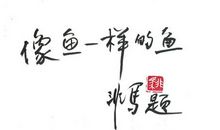 像鱼一样的鱼
非马题